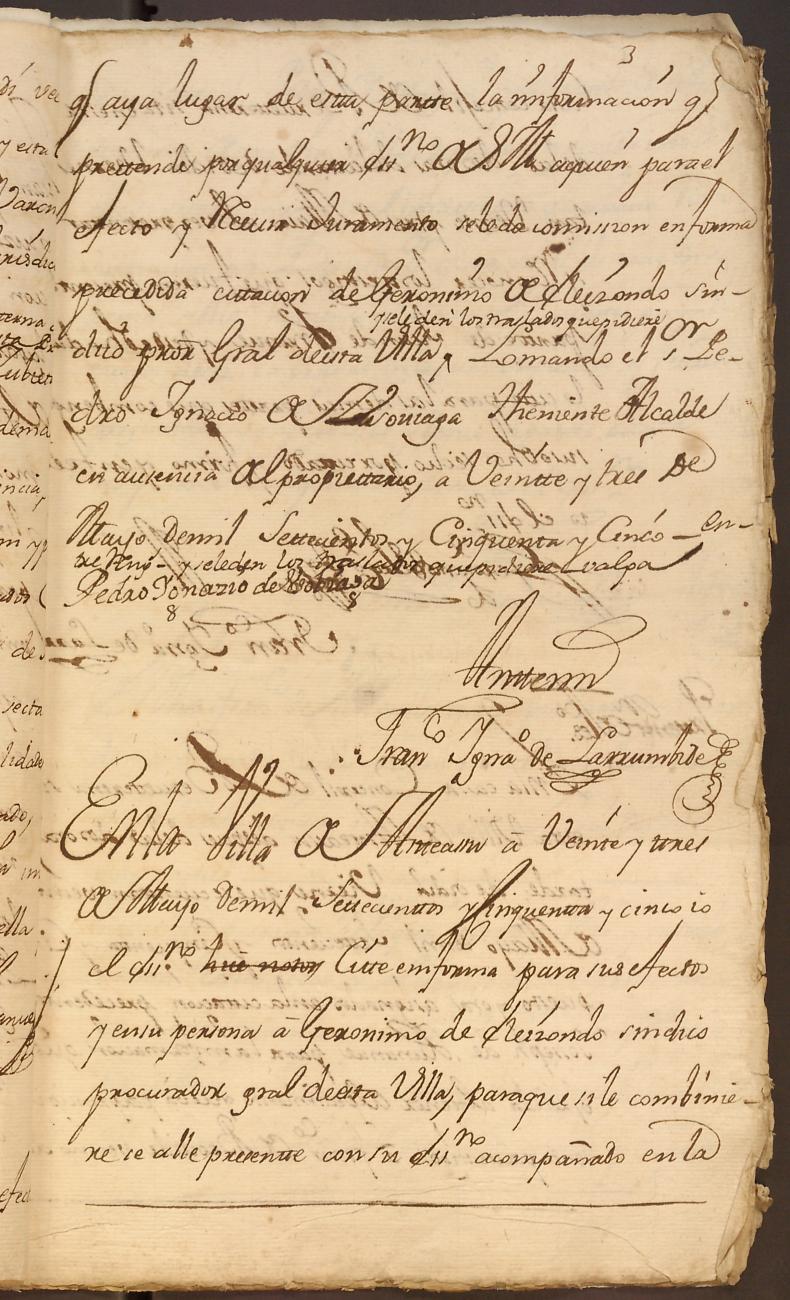 3
q̃ aya lugar de esta partte la ynformacion q̃
prettende por qualquier ess.no de S.M. aquien para el
efecto y Recivir Juramento seleda comission en forma
precedida cittacion de Geronimo de Eleizondo sin-
yseleden los traslados quepidiere
dico pror. Gral deesta Villa, Lomando el s.or Pe-
dro Ignacio de Theniente Alcalde
en ausencia del propiettario, a Veintte y tres De
Mayo Demil Settecientos y Cinquenta y Cinco – en-
tre Reng.s – y seleden los traslados quepidiere – valga
Pedro Ygnazio de
Antemi
Fran.co Igna.o de Larrumbide
En la Villa de Anoeta a Veinte y tres
de Mayo Demil Settecienttos y Cinquentta y cinco io
el ess.no hice notor Cite en forma para sus efectos
y en su persona à Geronimo de Eleizondo sindico
procurador gral deesta Villa, paraque sile combinie-
re se alle presentte con su ess.no acompañado en la